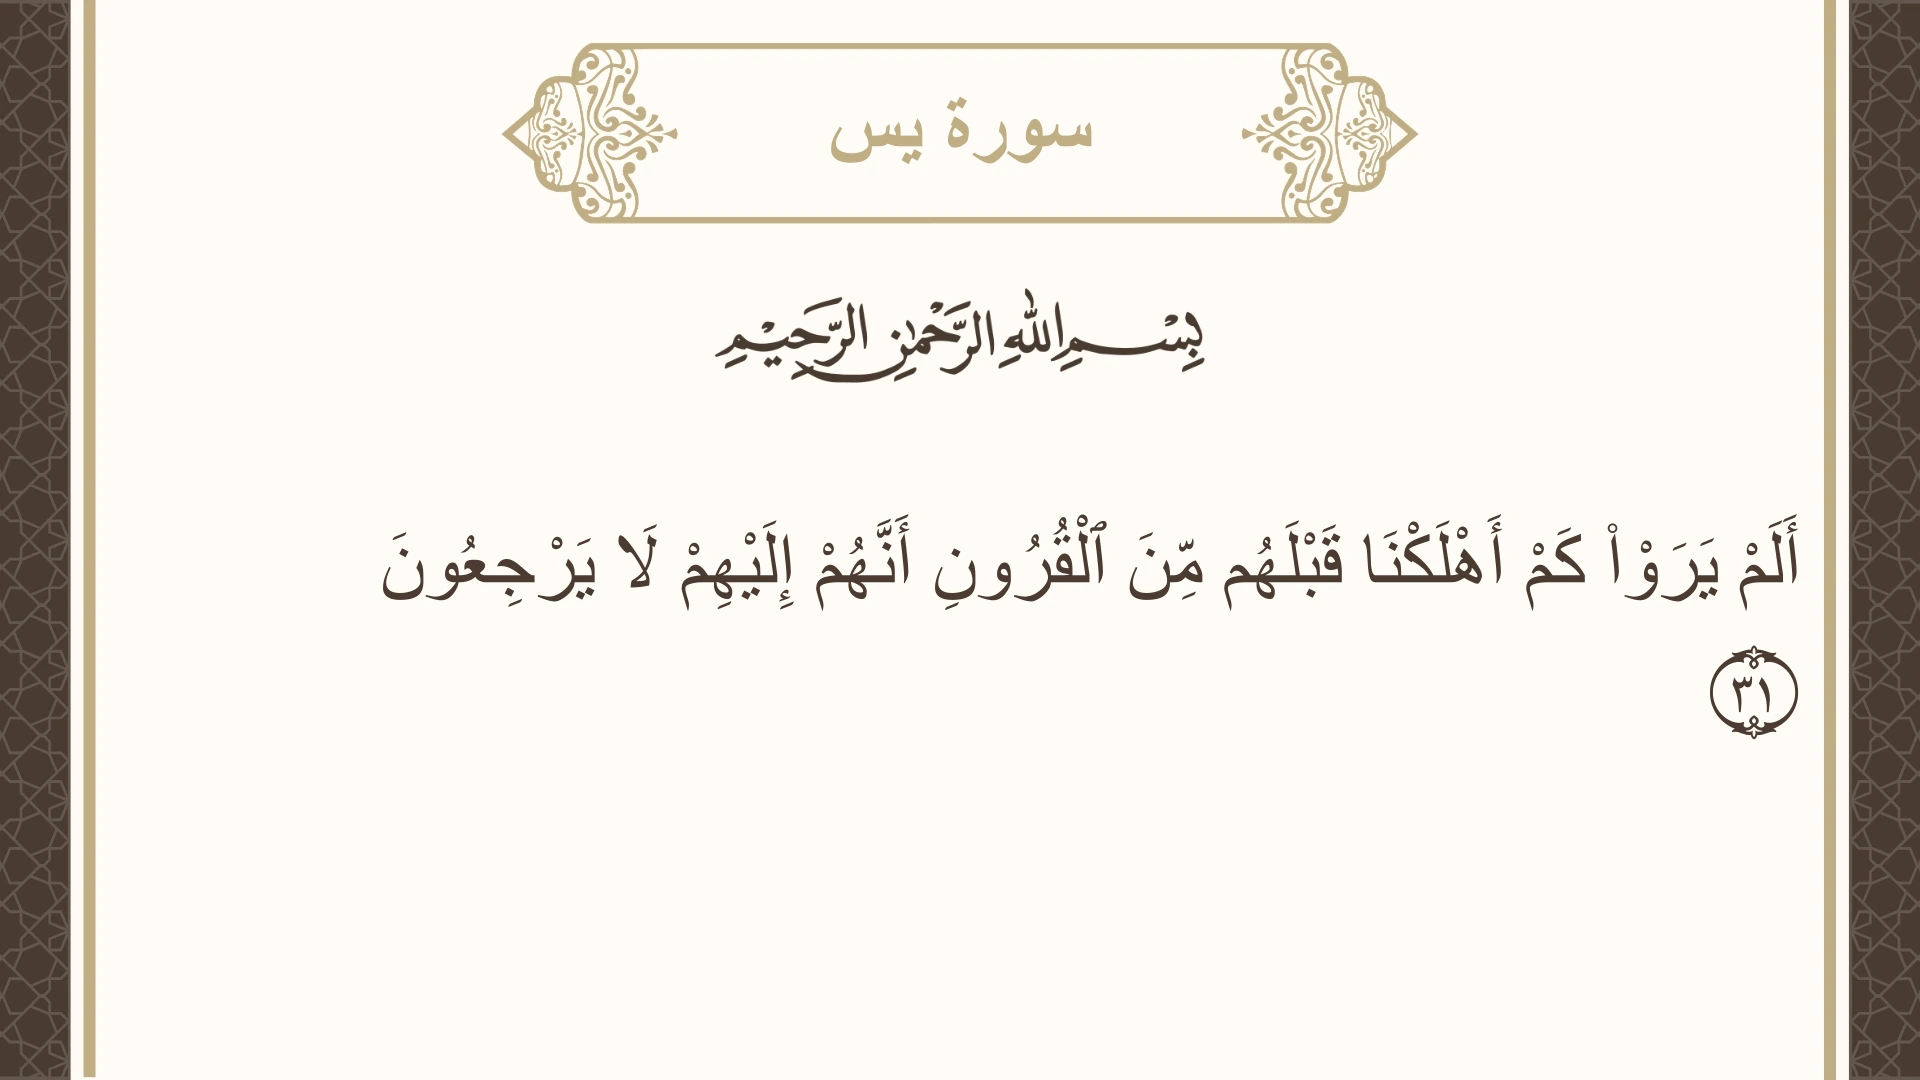 سورة يس
بِسْمِ اللهِ الرَّحْمٰنِ الرَّحِيْمِ
أَلَمْ يَرَوْا۟ كَمْ أَهْلَكْنَا قَبْلَهُم مِّنَ ٱلْقُرُونِ أَنَّهُمْ إِلَيْهِمْ لَا يَرْجِعُونَ
٣١